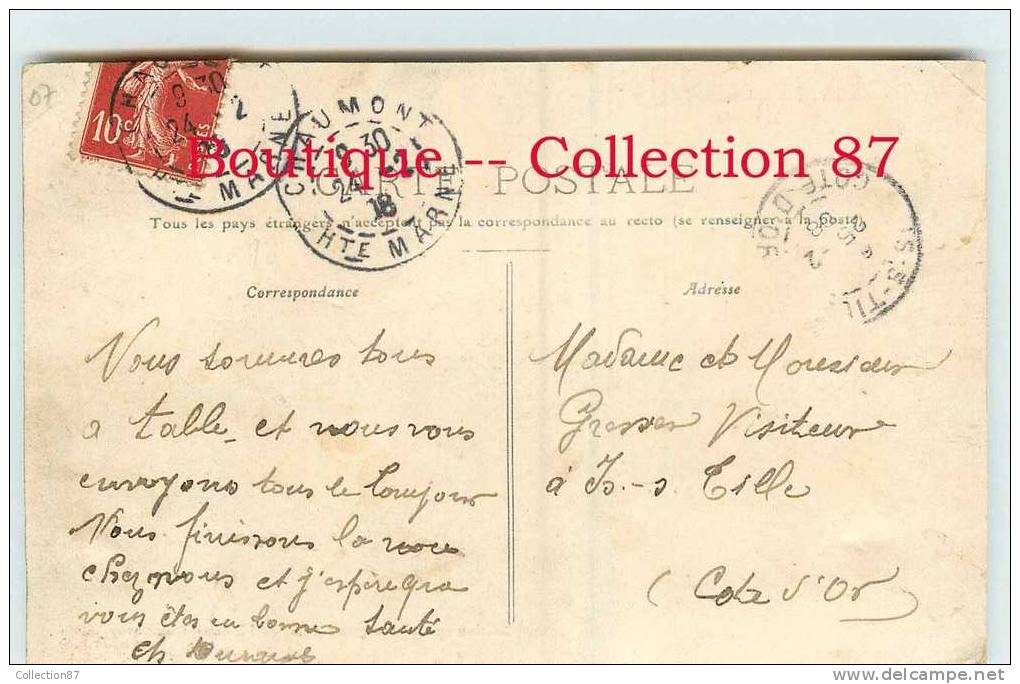 Boutique -- Collection 87
10c
CHAUMONT
9 30
24 - 2
HTE MARNE
CARTE POSTALE
Tous les pays étrangers n'acceptent pas la correspondance au recto (se renseigner à la poste
IS-S-TIL
COTE D'OR
Correspondance
Adresse
Nous sommes tous
a table et nous vous
envoyons tous le bonjour
Nous finissons la noce
chez nous et j'espère que
vous êtes en bonne santé
ch.
Madame et Monsieur
Visiteur
à Is.-s. Tille
(Cote d'Or)
07
Collection87
www.delcampe.net